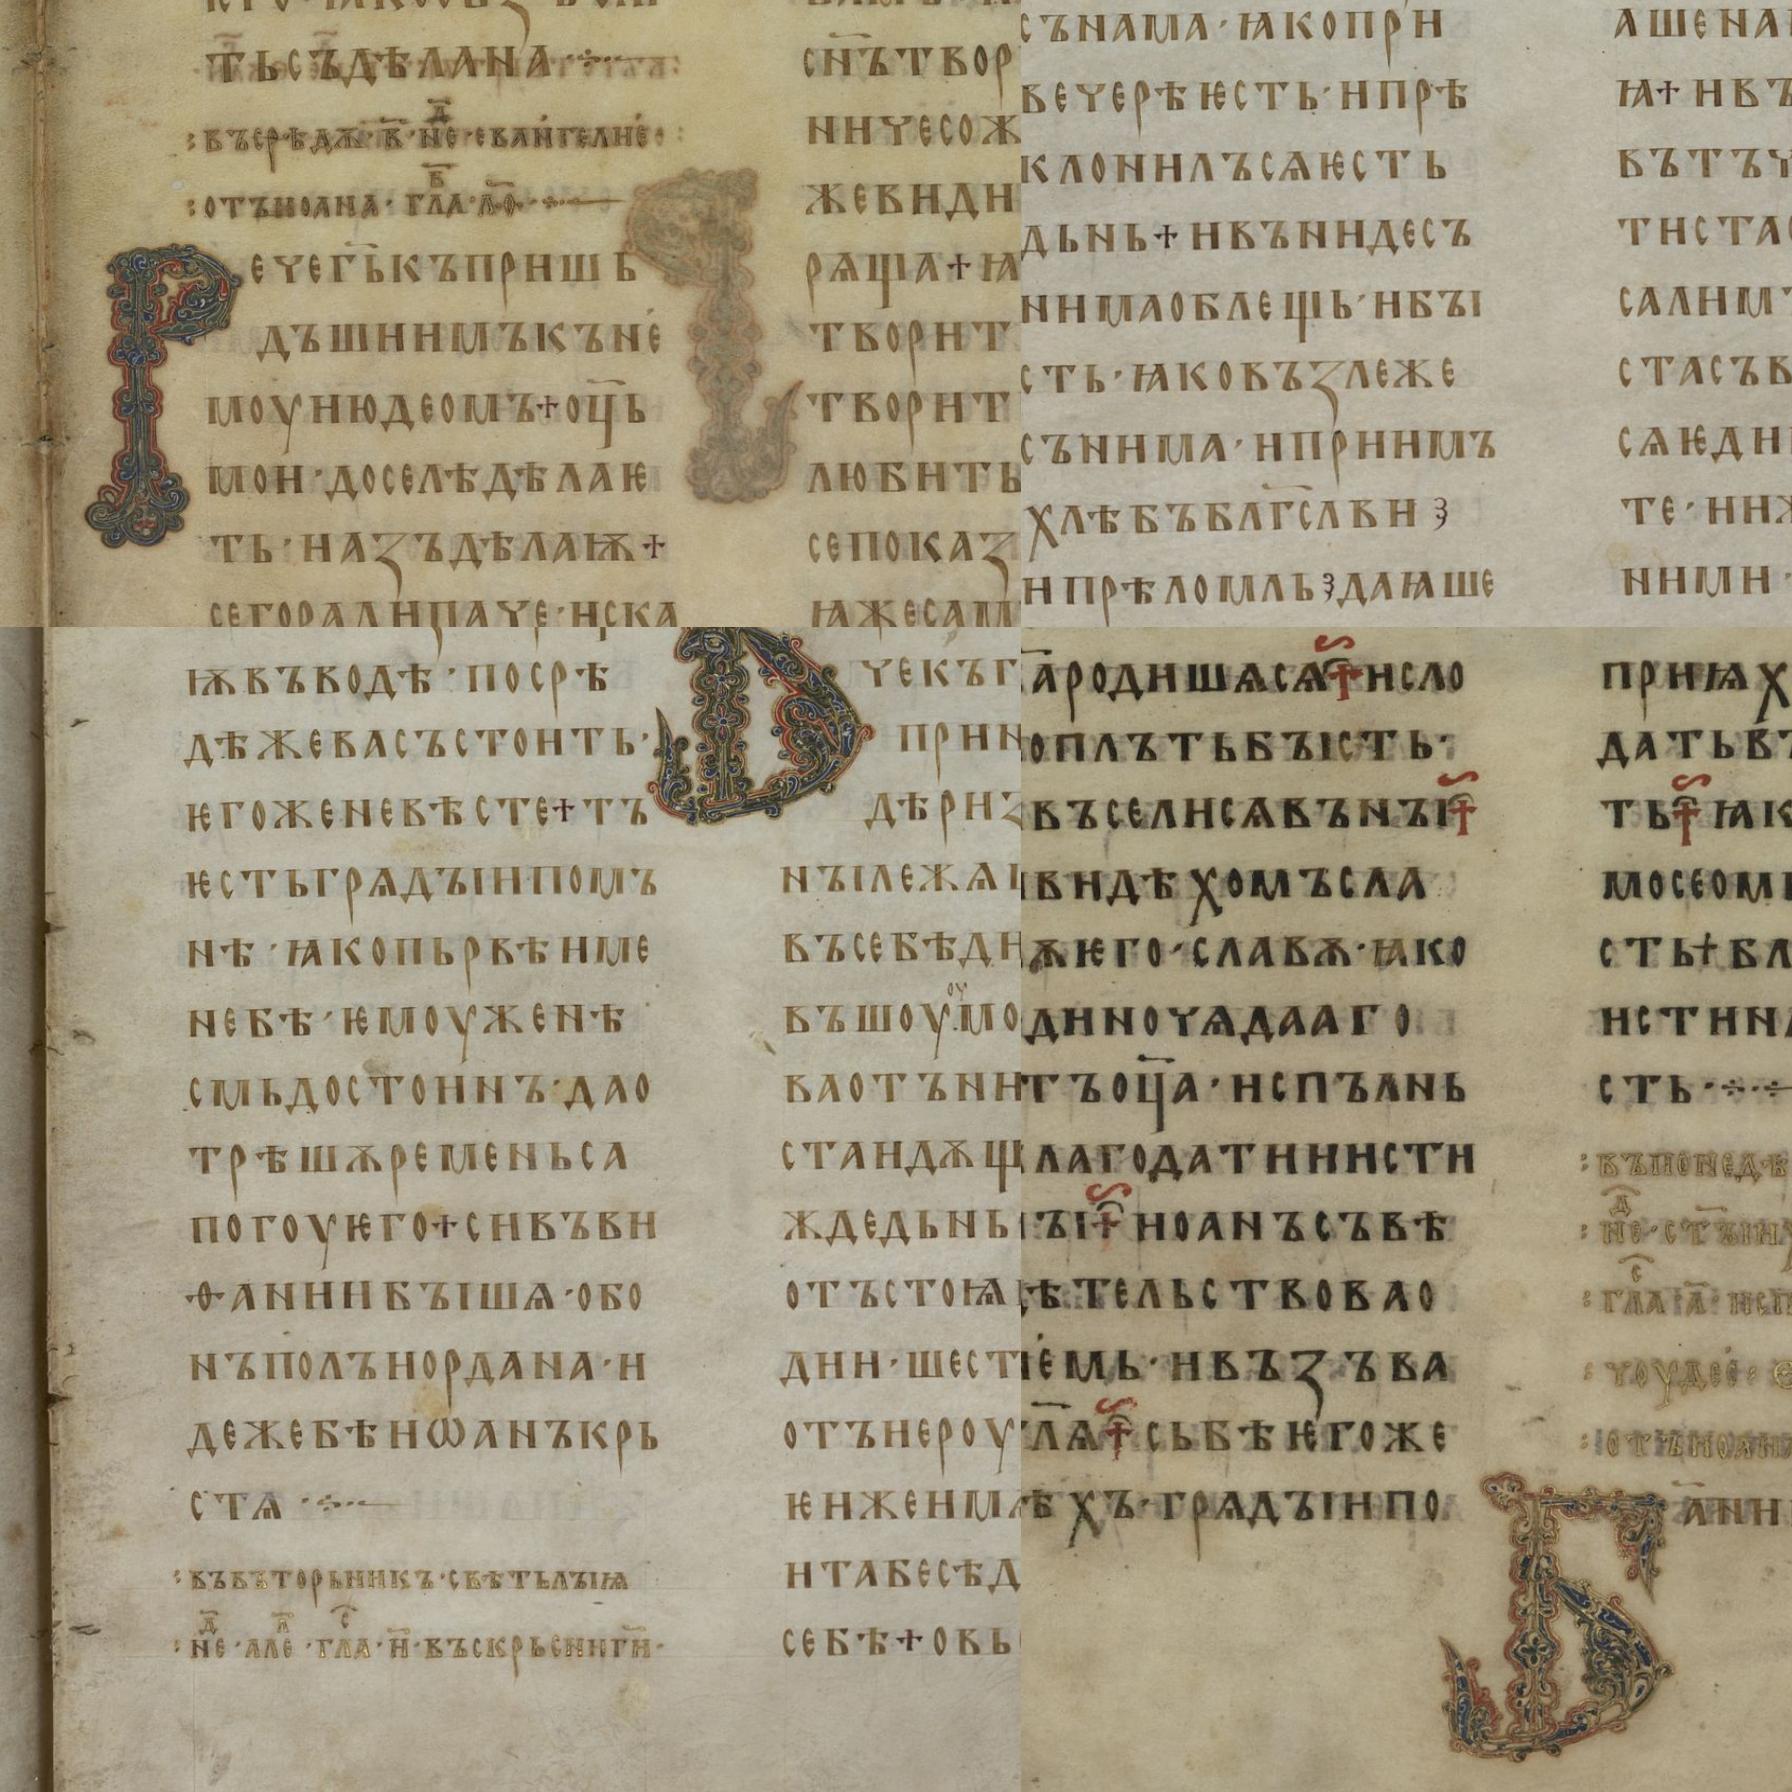 тьсъдѣлана
въсрѣдѫ·в҃·не·евангелие
отъиоана·гла·
ечег҃ькъпришь
дъшиимъкъне
моуиюдеомъ+оц҃ь
мои·доселѣдѣлаѥ
ть·иазъдѣлаѭ+
сегорадипаче·иска
сн҃ътвор
ничесож
жевиди
рѧщꙗ+ꙗ
творит
творит
любить
сепоказ
ꙗжесам
сънама·ꙗкопри
вечерѣѥсть·ипрѣ
клонилъсѧѥсть
дьнь+ивъниидесъ
нимаоблещь·ибꙑ
сть·ꙗковъзлеже
сънима·иприимъ
хлѣбъблг҃слви
ипрѣломль даꙗше
ашена
ꙗ+ивъ
вътъч
тиста
салим
стасъв
сѧѥди
те·ниж
ними·
ѭвъводѣ·посрѣ
дѣжевасъстоить·
ѥгоженевѣсте+тъ
ѥстьгрѧдꙑипомъ
нѣ·ꙗкопьрвѣиме
небѣ·ѥмоуженѣ
смьдостоинъ·дао
трѣшѫременьса
погоуѥго+сивъви
ѳаниибꙑшѧ·обо
нъполъиордана·и
дежебѣиѡанъкрь
стѧ
въвъторьникъ·свѣтьлꙑꙗ
не·але·гла·и҃·въскрьсниги҃·
чекъг
прии
дѣриз
нꙑлежѧ
въсебѣди
въшоумо
ваотъни
стаидѫщ
ждедьнь
отъстоꙗ
дии·шест
отъиероу
ѥиженим
итабесѣд
себѣ+овь
ародишѧсѧ+исло
оплътьбꙑсть·
въселисѧвънꙑ+
видѣхомъсла
ѫѥго·славѫ·ꙗко
диночѧдааго
тъоц҃а·испълнь
лагодатииисти
ꙑ+иоанъсъвѣ
ѣтельствовао
емь·ивъзъва
лѧ+сьбѣѥгоже
ѣхъ·грѧдꙑипо
приꙗх
датьв
ть+ꙗк
мосеом
сть+бл
истин
сть·
въпонедѣ
не·ст҃ꙑ
гла·